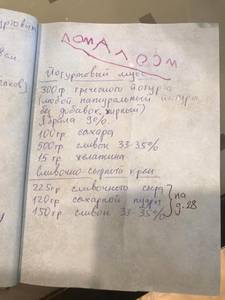 ДОМАЛОЭМ
Йогуртовый мусс
300гр греческого йогурта
(любой натуральный йогурт
без добавок, жирный)
Я брала 9%.
100гр сахара
500гр сливок 33-35%
15гр желатина
Сливочно-сырный крем
225гр сливочного сыра
120гр сахарной пудры
150гр сливок 33-35%
на
д.28